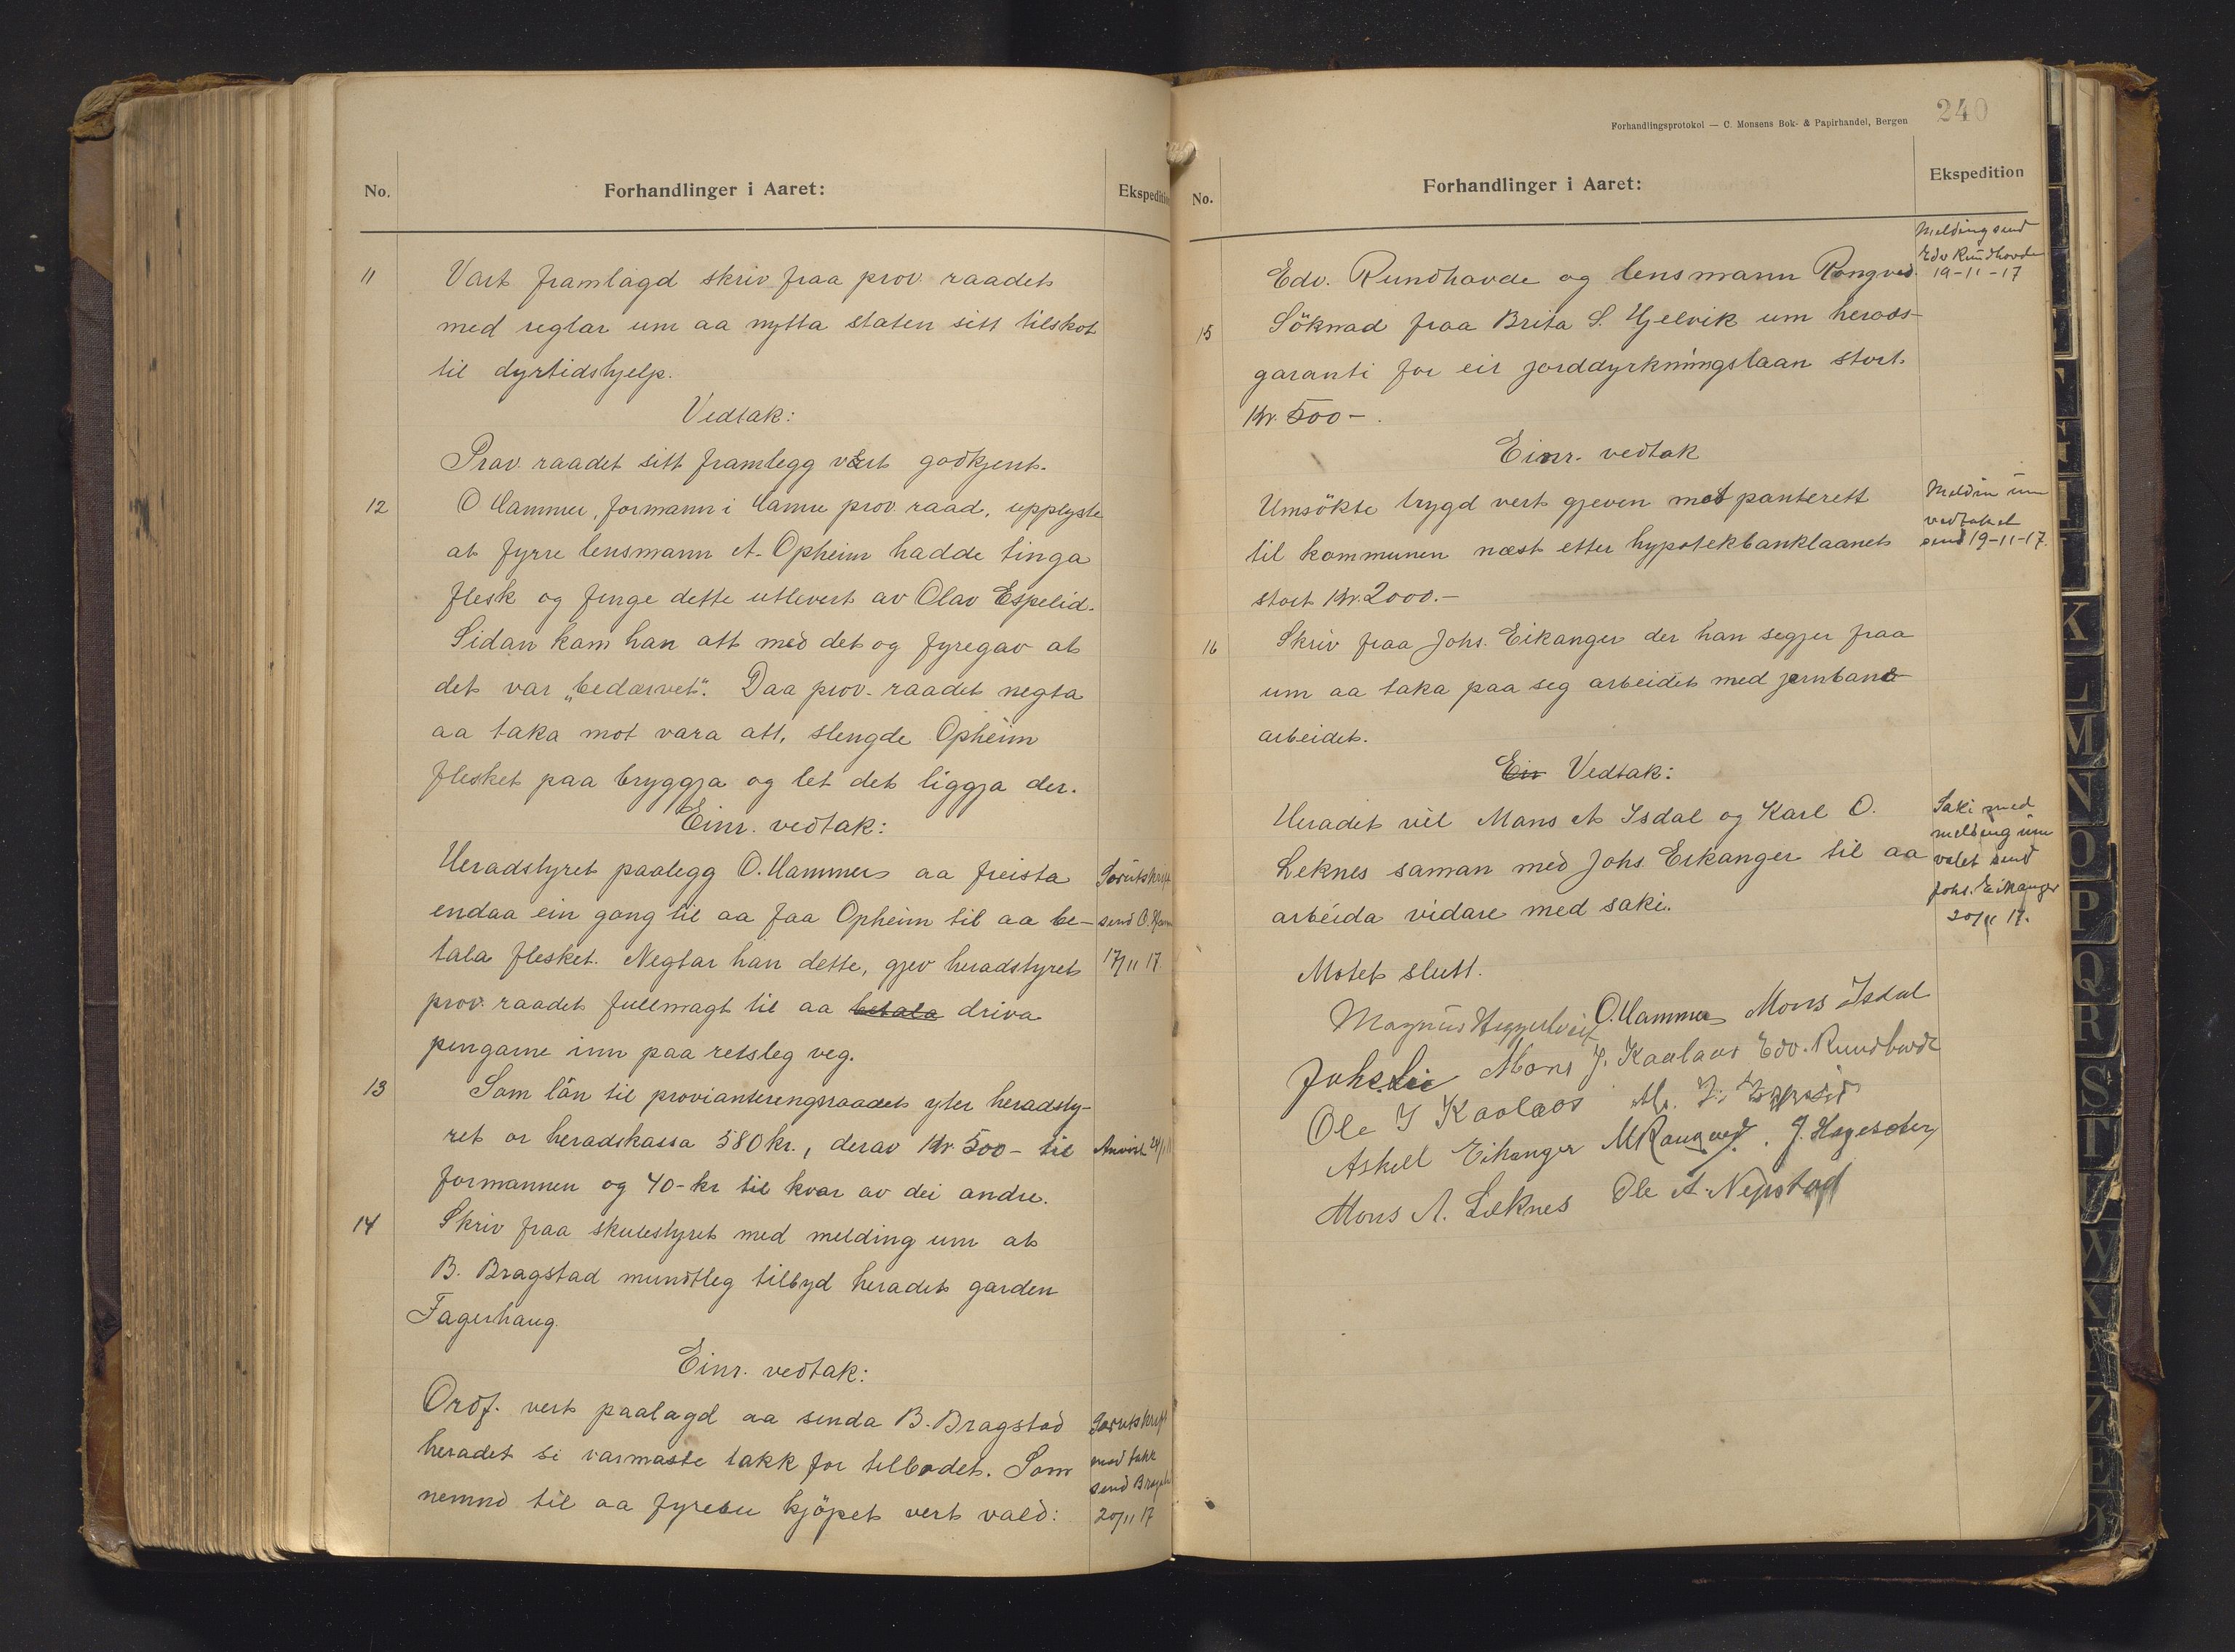 No.
Forhandlinger i Aaret:
Ekspedition
11
Vart framlagd skriv fraa prov. raadet
med reglar um aa nytta staten sitt tilskot
til dyrtidshjelp.
Vedtak:
Prov. raadet sitt framlegg vert godkjent.
12
O Hammer, formann i Hamre prov. raad, upplyste
at fyrre lensmann A. Opheim hadde tinga
flesk og finge dette utlevert av Olav Espelid.
Sidan kom han att med det og fyregav at
det var „bedærvet". Daa prov. raadet negta
aa taka mot vara att, slengde Opheim
flesket paa bryggja og let det liggja der.
Einr. vedtak:
Heradstyret paalegg O. Hammer aa freista
endaa ein gong til aa faa Opheim til aa be-
tala flesket. Negtar han dette, gjev heradstyret
prov. raadet fullmagt til aa betala driva
pengarne inn paa retsleg veg.
Særutskrift
send O. Ham
17/11 17
13
Som lån til provianteringsraadet yter heradsty-
ret or heradskassa 580 kr., derav Kr. 500- til
formannen og 40- kr til kvar av dei andre.
Anvist 24/11
14
Skriv fraa skulestyret med melding um at
B. Bragstad mundtleg tilbyd heradet garden
Fagerhaug.
Einr. vedtak:
Ordf. vert paalagd aa senda B. Bragstad
heradet si varmaste takk for tilbodet. Som
nemnd til aa fyrebu kjöpet vert vald:
Særutskrift
med takk
send Bragst
20/11 17
240
Forhandlingsprotokol — C. Monsens Bok- & Papirhandel, Bergen
No.
Forhandlinger i Aaret:
Ekspedition
Edv. Rundhovde og lensmann Rongved.
Melding send
Edv Rundhovde
19-11-17
15
Söknad fraa Brita S. Hjelvik um herads-
garanti for eit jorddyrkningslaan stort
Kr. 500-.
Einr. vedtak
Umsökte trygd vert gjeven mot panterett
til kommunen næst etter hypotekbanklaanet
stort Kr. 2000.-
Meldin um
vedtaket
send 19-11-17.
16
Skriv fraa Johs. Eikanger der han segjer fraa
um aa taka paa seg arbeidet med jernbane
arbeidet.
Ein Vedtak:
Heradet vil Mons A Isdal og Karl O.
Leknes saman med Johs Eikanger til aa
arbeida vidare med saki.
Saki med
melding um
valet send
Johs. Eikanger
20/11 17.
Motet slutt.
Magnus Heggertveit O. Hammer Mons Isdal
Johs Lie Mons J. Kaalaas Edv. Rundhovde
Ole J Kaalaas
Askell Eikanger M Rongved. J. Hageseter
Mons A. Leknes Ole A. Nepstad